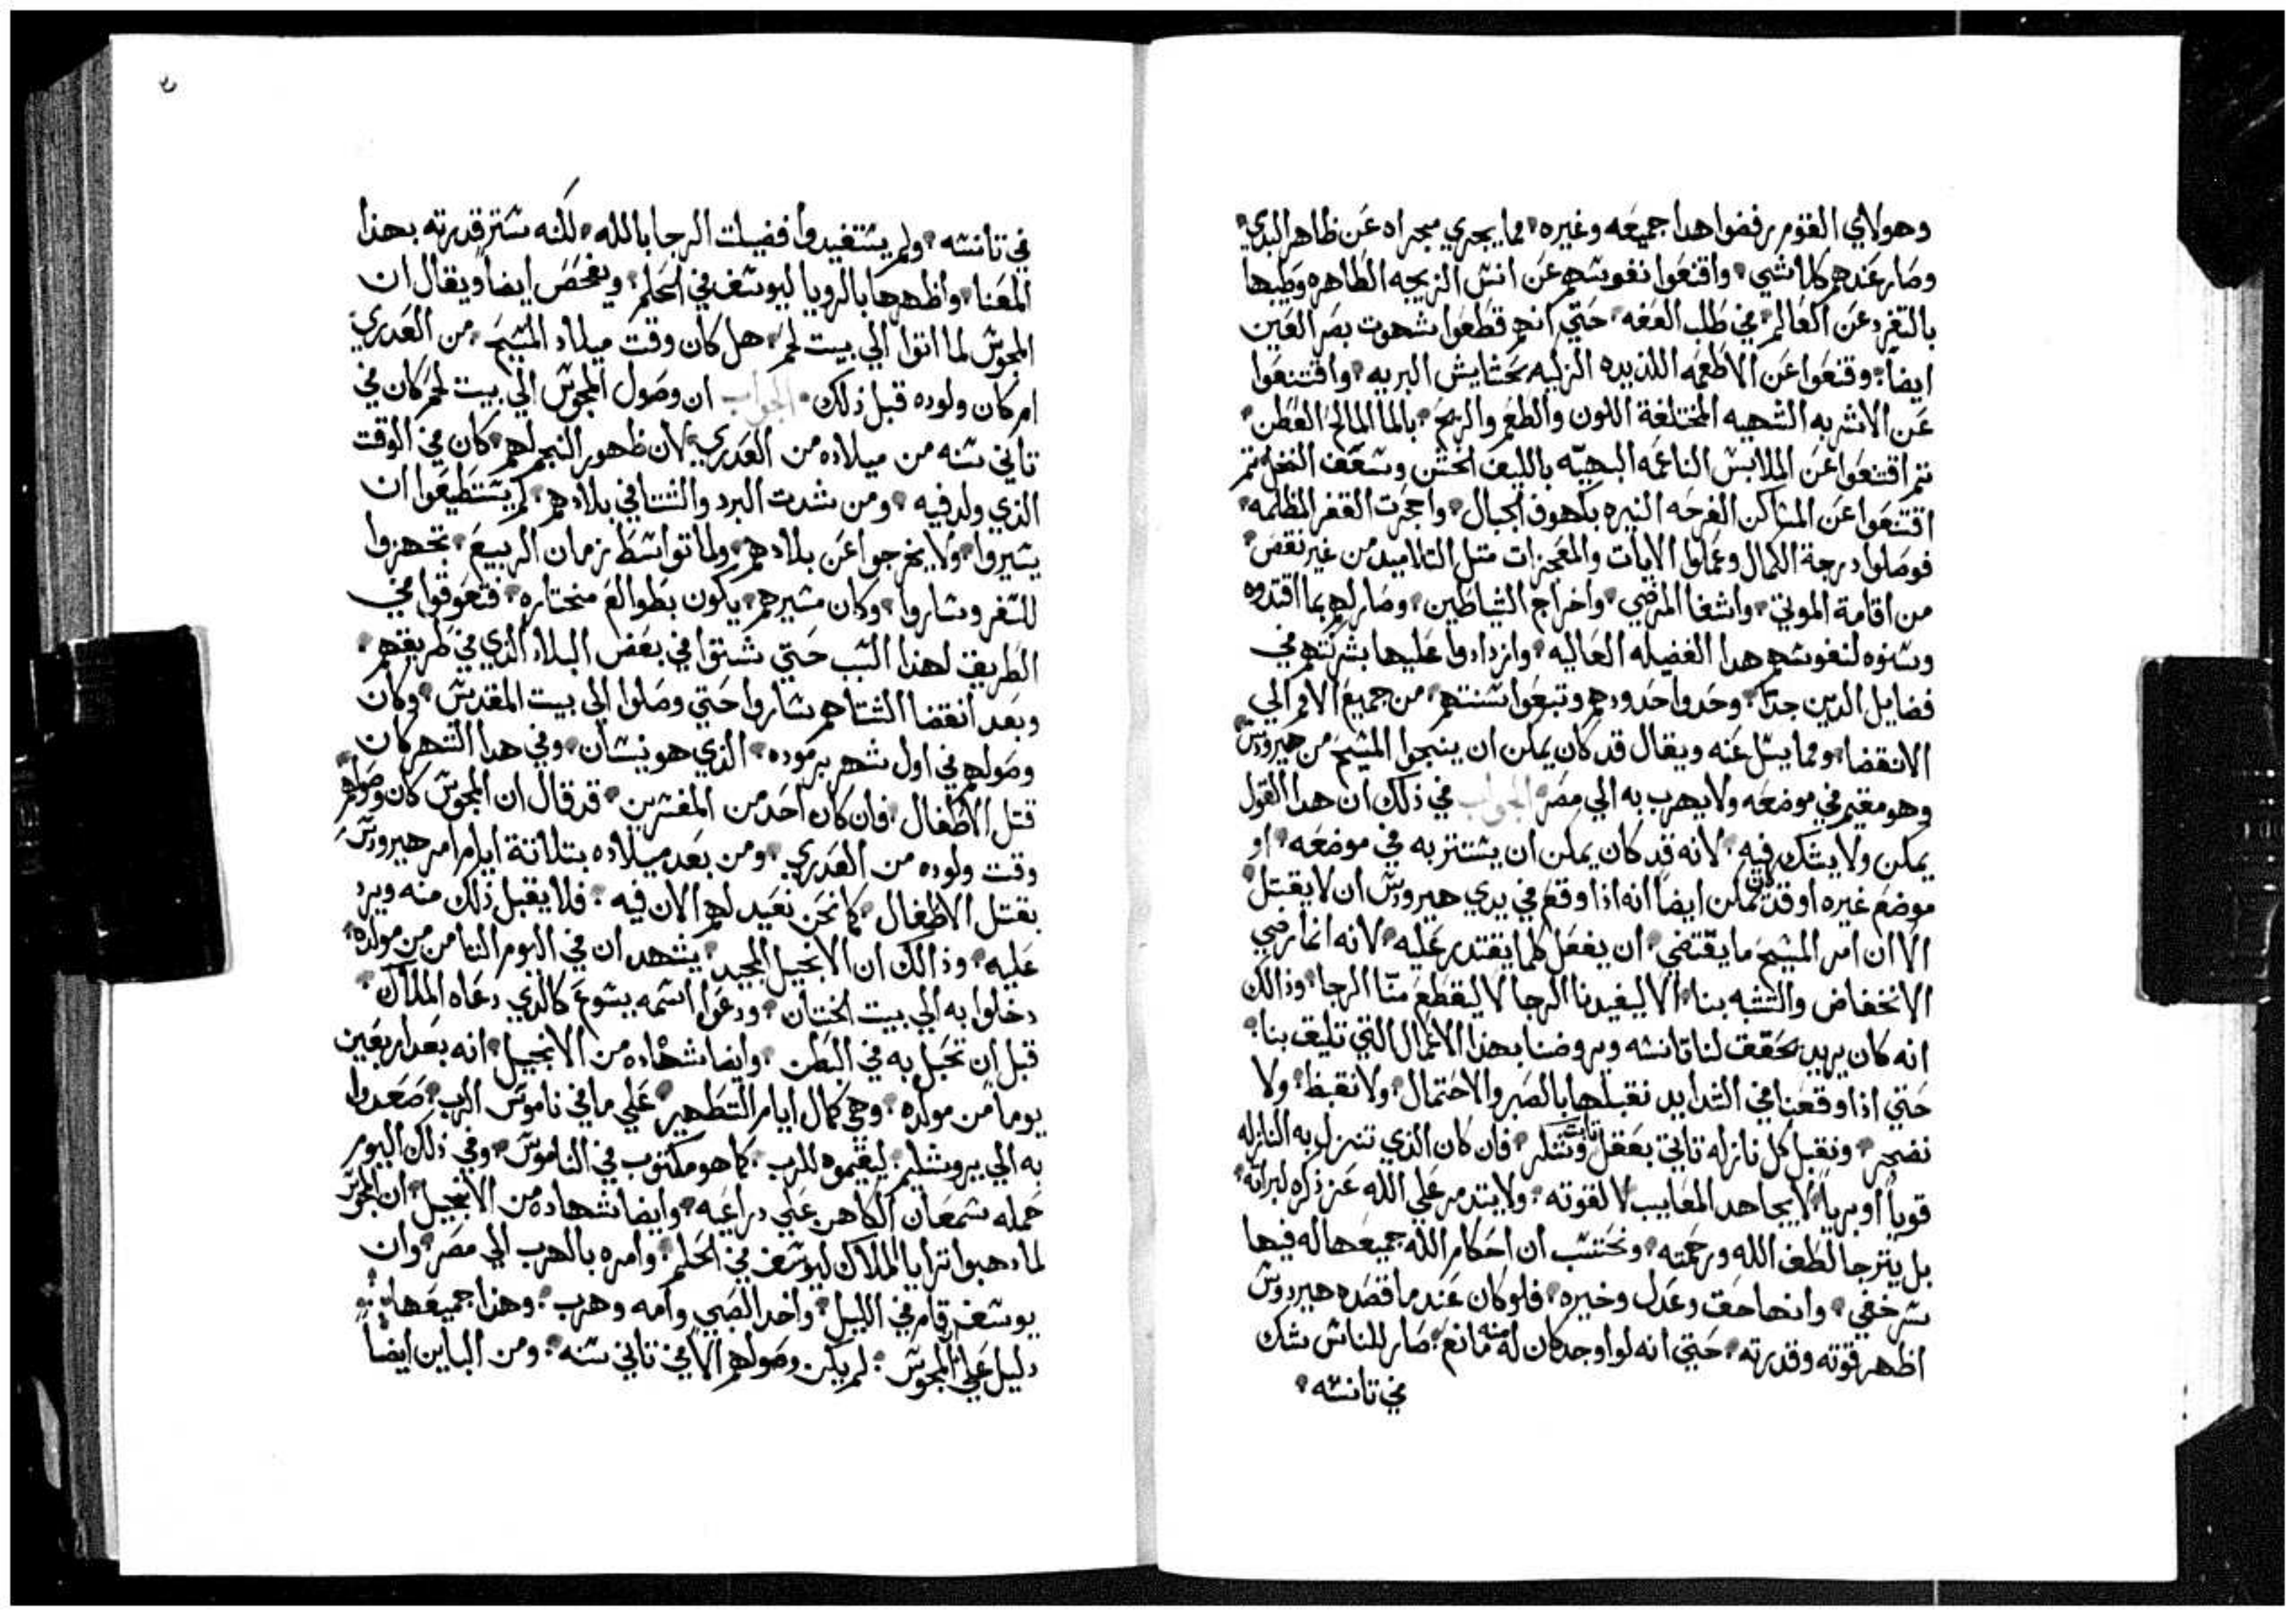 وهولاي القوم رفضوا هدا جميعه وغيره مما يجري مجراه عن ظاهر البدي
وصار عندهم كلا شي واقنعوا نفوسهم عن انس الزيجه الطاهره وطيبها
بالتفرد عن العالم في طلب العفه حتي انهم قطعوا شهوت بصر العين
ايضا وقنعوا عن الاطعمه اللديده الزكيه بحشايش البريه واقتنعوا
عن الاشربه الشهيه المختلفة اللون والطعم والريح بالما المالح القطن
تم اقتنعوا عن الملابس الناعمه البهيه بالليف الخشن وسعف النخل تم
اقتنعوا عن المساكن الفرحه النيره بكهوف الجبال واجحرت القفر المظلمه
فوصلوا درجة الكمال وعملوا الايات والمعجزات متل التلاميد من غير نقص
من اقامة الموتي واشفا المرضي واخراج الشياطين وصار لهم بما اقتدوه
وسنوه لنفوسهم هدا الفضيله العاليه وازدادوا عليها بشركتهم في
فضايل الدين جدا وحدوا حدودهم وتبعوا سنتهم من جميع الامم الي
الانقضا ومما يسل عنه ويقال قد كان يمكن ان ينجوا المسيح من هيرودس
وهو مقيم في موضعه ولا يهرب به الي مصر الجواب في ذلك ان هدا القول
يمكن ولا يشك فيه لانه قد كان يمكن ان يستتر به في موضعه او
موضع غيره او قد كان يمكن ايضا انه اذا وقع في يدي هيرودس ان لا يقتل
الا ان امر المسيح ما يقتضي ان يفعل كلما يقتدر عليه لانه انما رضي
الانخفاض والتشبه بنا الا ليفيدنا الرجا لا ليقطع منا الرجا وذالك
انه كان يريد يحقق لنا تانسه ويروضنا بهذا الاعمال التي تليق بنا
حتي اذا وقعنا في الشدايد نقبلها بالصبر والاحتمال ولا نقبظ ولا
نضجر ونقبل كل نازله تاتي بعقل ثابت وشكر فان كان الذي تنزل به النازله
قويا او بريا لا يجاهد المعايب لا لقوته ولا يتدمر علي الله عز ذكره لبراته
بل يترجا لطف الله ورحمته ونحتسب ان احكام الله جميعها له فيها
سر خفي وانها حق وعدل وخيره فلو كان عند ما قصده هيرودس
اظهر قوته وقدرته حتي انه لو اوجد كان له منه مانع صار للناس شك
في تانسه
في تانسه ولم يستفيدوا فضيلت الرجا بالله لكنه ستر قدرته بهذا
المعنا واظهرها بالرويا ليوسف في الحلم ويفحص ايضا ويقال ان
المجوس لما اتوا الي بيت لحم هل كان وقت ميلاد المسيح من العدري
ام كان ولوده قبل ذلك الجواب ان وصول المجوس الي بيت لحم كان في
تاني سنه من ميلاده من العدري لان ظهور النجم لهم كان في الوقت
الذي ولد فيه ومن شدت البرد والشتا في بلادهم لم يستطيعوا ان
يسيروا ولا يخرجوا عن بلادهم ولما توسط زمان الربيع تجهزوا
للسفر وساروا وكان مسيرهم يكون بطوالع منحتاره فتعوقوا في
الطريق لهذا السبب حتي شتوا في بعض البلاد الذي في طريقهم
وبعد انقضا الشتاهم ساروا حتي وصلوا الي بيت المقدس وكان
وصولهم في اول شهر برموده الذي هو نيسان وفي هدا الشهر كان
قتل الاطفال فان كان احد من المفسرين قد قال ان المجوس كان وصولهم
وقت ولوده من العدري ومن بعد ميلاده بتلاتة ايام امر هيرودس
بقتل الاطفال كما نحن نعيد لهم الان فيه فلا يقبل ذلك منه ويرد
عليه وذالك ان الانجيل المجيد يشهد ان في اليوم التامن من مولده
دخلوا به الي بيت الختان ودعوا اسمه يسوع كالذي دعاه الملاك
قبل ان تحبل به في البطن وايضا شهاده من الانجيل انه بعد اربعين
يوما من مولده وهي كمال ايام التطهير علي ما في ناموس الرب صعدوا
به الي يروشليم ليقيموه للرب كما هو مكتوب في الناموس وفي ذلك اليوم
حمله سمعان الكاهن علي دراعيه وايضا شهاده من الانجيل ان المجوس
لما دهبوا ترايا الملاك ليوسف في الحلم وامره بالهرب الي مصر وان
يوسف قام في الليل واخد الصبي وامه وهرب وهذا جميعها
دليل علي ان المجوس لم يكن وصولهم الا في تاني سنه ومن الباين ايضا